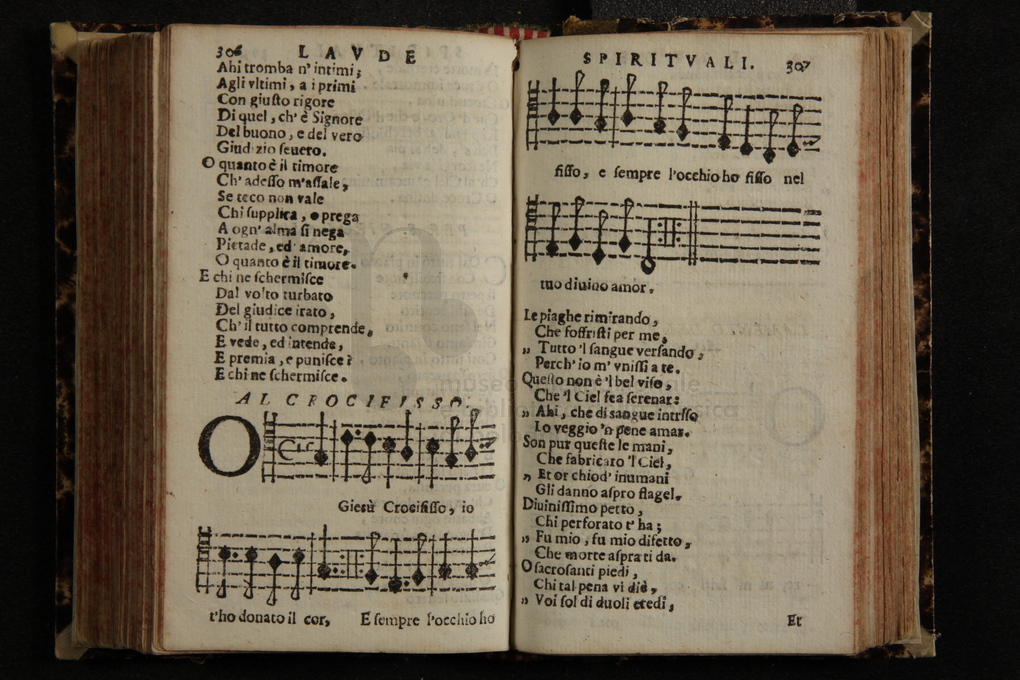 306 LAVDE
Ahi tromba n' intimi;
Agli vltimi, a i primi
Con giusto rigore
Di quel, ch' è Signore
Del buono, e del vero
Giudizio seuero.
O quanto è il timore
Ch' adesso m'assale,
Se teco non vale
Chi supplica, o prega
A ogn' alma si nega
Pietade, ed' amore,
O quanto è il timore.
E chi ne schermisce
Dal volto turbato
Del giudice irato,
Ch' il tutto comprende,
E vede, ed intende,
E premia, e punisce?
E chi ne schermisce.
AL CROCIFISSO.
O
Giesù Crocifisso, io
t'ho donato il cor, E sempre l'occhio ho
SPIRITVALI. 307
fisso, e sempre l'occhio ho fisso nel
tuo diuino amor.
Le piaghe rimirando,
Che soffristi per me,
„ Tutto 'l sangue versando,
Perch' io m' vnissi a te.
Questo non è 'l bel viso,
Che 'l Ciel fea serenar:
„ Ahi, che di sangue intriso
Lo veggio 'n pene amar.
Son pur queste le mani,
Che fabricaro 'l Ciel,
„ Et or chiod' inumani
Gli danno aspro flagel.
Diuinissimo petto,
Chi perforato t' ha;
„ Fu mio, fu mio difetto,
Che morte aspra ti da.
O sacrosanti piedi,
Chi tal pena vi diè,
„ Voi sol di duoli eredi,
Et